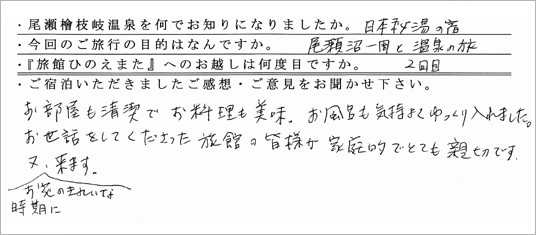 ・尾瀬檜枝岐温泉を何でお知りになりましたか。 日本秘湯の宿
・今回のご旅行の目的はなんですか。 尾瀬沼一周と温泉の旅
・『旅館ひのえまた』へのお越しは何度目ですか。 2回目
・ご宿泊いただきましたご感想・ご意見をお聞かせ下さい。
お部屋も清潔でお料理も美味。お風呂も気持よくゆっくり入れました。
お世話をしてくださった旅館の皆様が家庭的でとても親切です。
又、来ます。
お花のきれいな
時期に